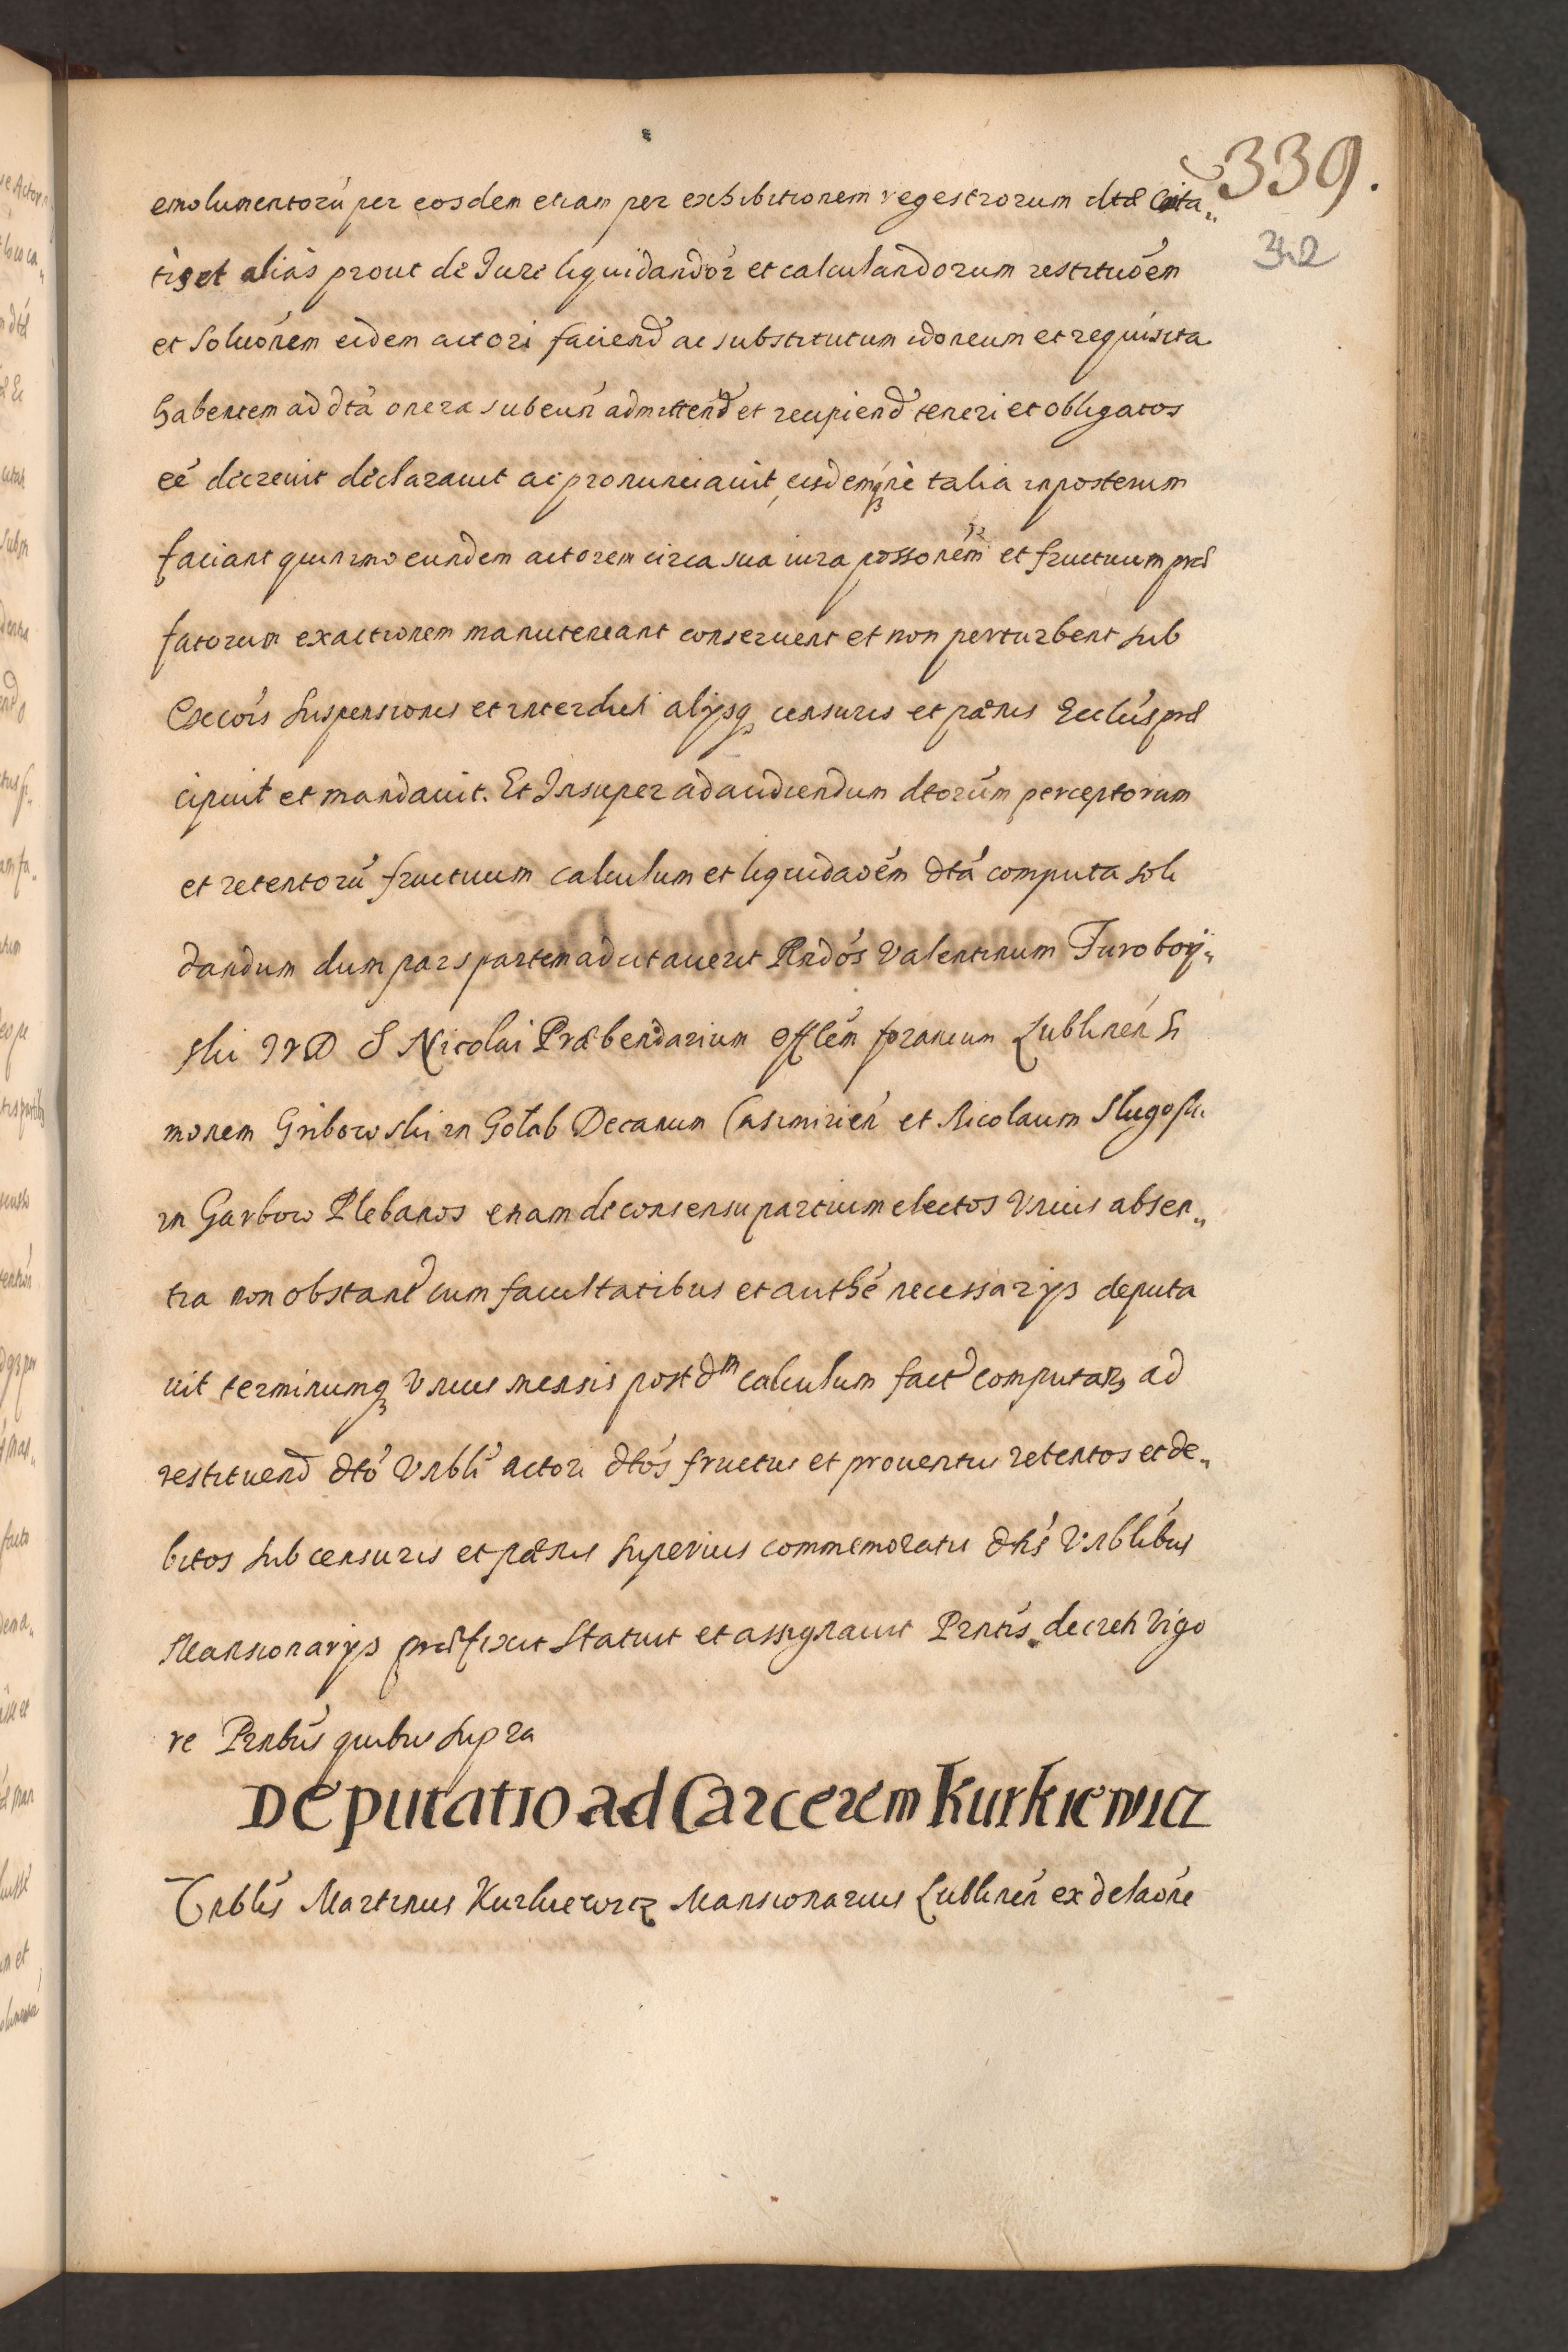 339.
342
emolumentorú per eosdem etiam per exhibitionem regestrorum dtæ Cita„
tis et aliàs prout de Jure liquidandór et calculandorum restitúoém
et Soluónem eidem actori faciend ac substitutum idoneum et requisita
habentem ad dtá onera subeun̄ admittend et recipiend teneri et obligatos
eé decreuit declarauit ac pronunciauit, eisdemq́ né talia inposterum
faciant quinimo eundem actorem circa sua iura possoném et fructuum præ
fatorum exactionem manuteneant conseruent et non perturbent sub
Excóis suspensionis et interdicti alijsq censuris et pænis Ecclús præ
cipuit et mandauit. Et Insuper ad audiendum dtorúm perceptorum
et retentorú fructuum calculum et liquidaoém dtá computa soli
dandum dum pars partem ad id citauerit Rndós Valentinum Turoboij„
ski JVD S Nicolai Præbendarium offlém foraneum Lublinén Si
monem Gribowski in Gołąb Decanum Casimirien̄ et Nicolaum Slugoski
in Garbow Plebanos etiam de consensu partium electos Vnius absen„
tia non obstante cum facultatibus et authé necessarijs deputa
uit terminumq Vnius mensis post dm calculum fact computan ad
restituend dtó Vnblí actori dtós fructus et prouentus retentos et de„
bitos sub censuris et pænis superius commemoratis dtís Vnblibús
Mansionarijs præfixit statuit et assignauit Pntis decreti Vigo
re Pntibús quibus supra
Deputatio ad Carcerem Kurkiewicz
Vnblís Martinus Kurkiewicz Mansionarius Lublinén ex delaóne